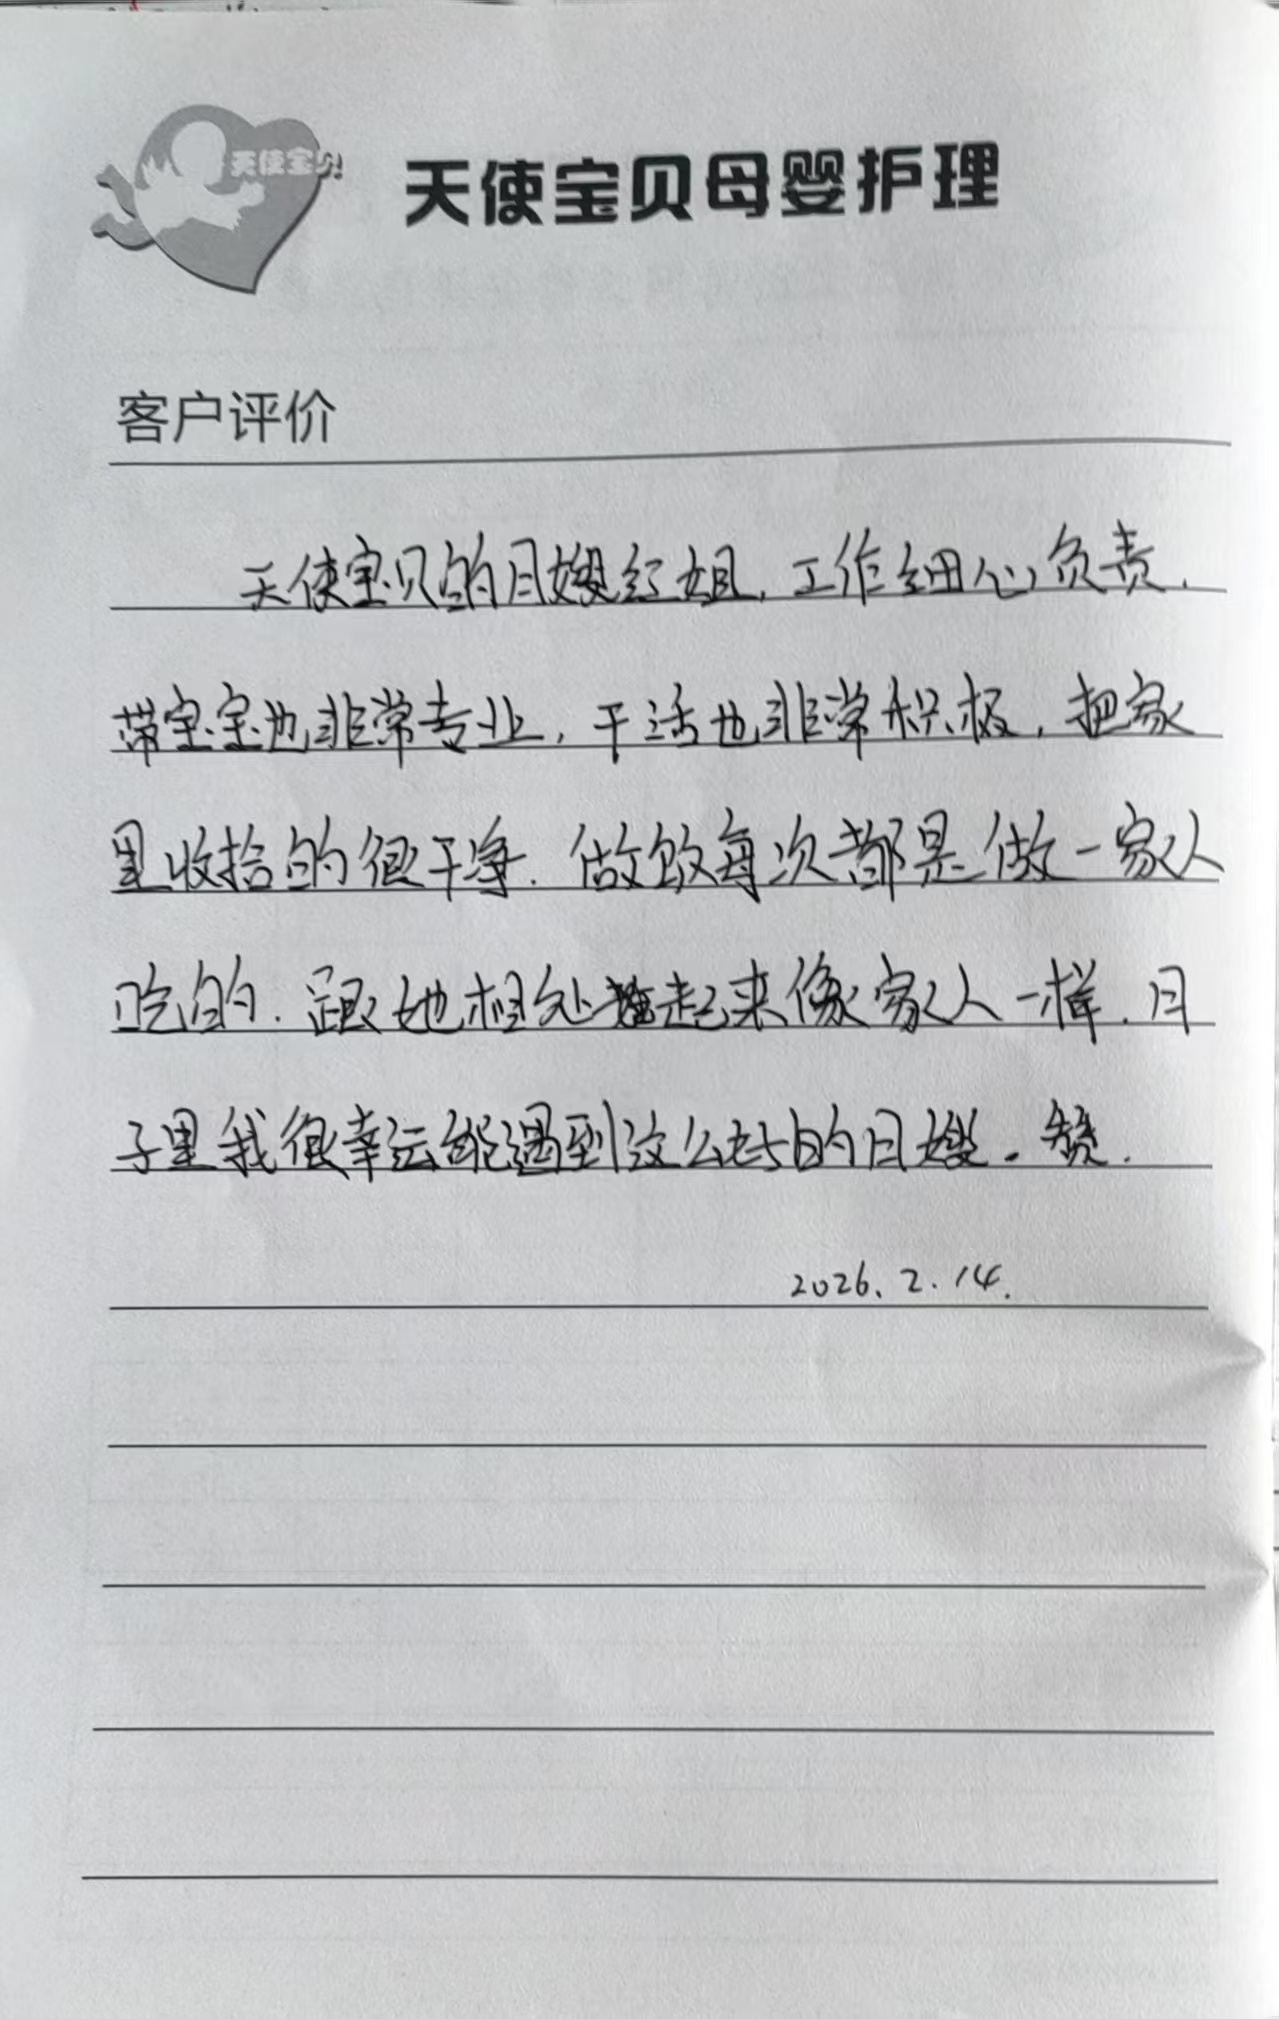 天使宝贝
天使宝贝母婴护理
客户评价
天使宝贝的月嫂红姐,工作细心负责,
带宝宝也非常专业,干活也非常积极,把家
里收拾的很干净.做饭每次都是做一家人
吃的.跟她相处起来像家人一样.月
子里我很幸运能遇到这么好的月嫂。赞.
2026.2.14.